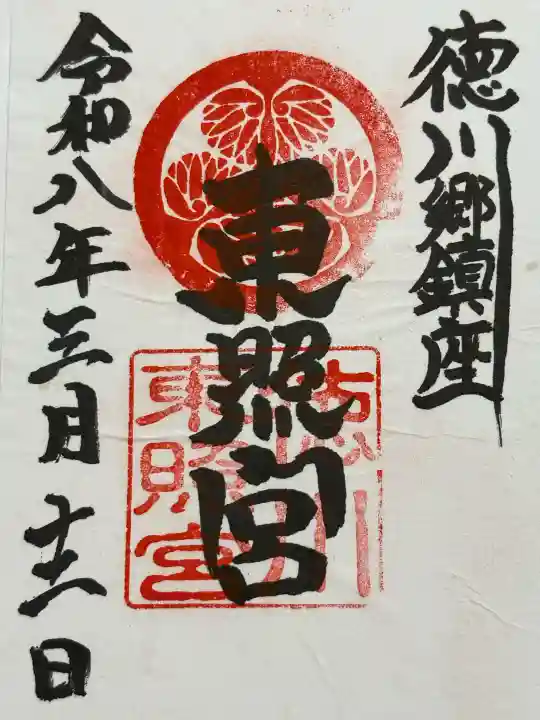 徳川郷鎮座
東照宮
徳川
東照宮
令和八年三月十一日